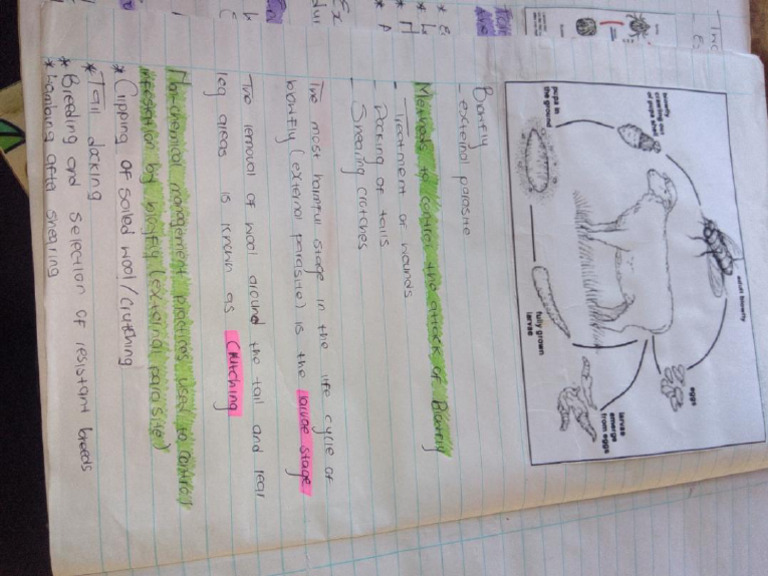 adult blowfly
blowfly
crawling out
of pupa shell
eggs
pupa in
the ground
fully grown
larvae
larvae
emerge
from eggs
Blowfly
- external parasite
Methods to control the attack of Blowfly
- Treatment of wounds
- Docking of tails
- Shearing crotches
The most harmful stage in the life cycle of
blowfly (external parasite) is the larvae stage
The removal of wool around the tail and rear
leg areas is known as Crutching
Non-chemical management practices used to control
infestation by blowfly (external parasite)
* Clipping of soiled wool/crutching
* Tail docking
* Breeding and selection of resistant breeds
* Lambing after shearing